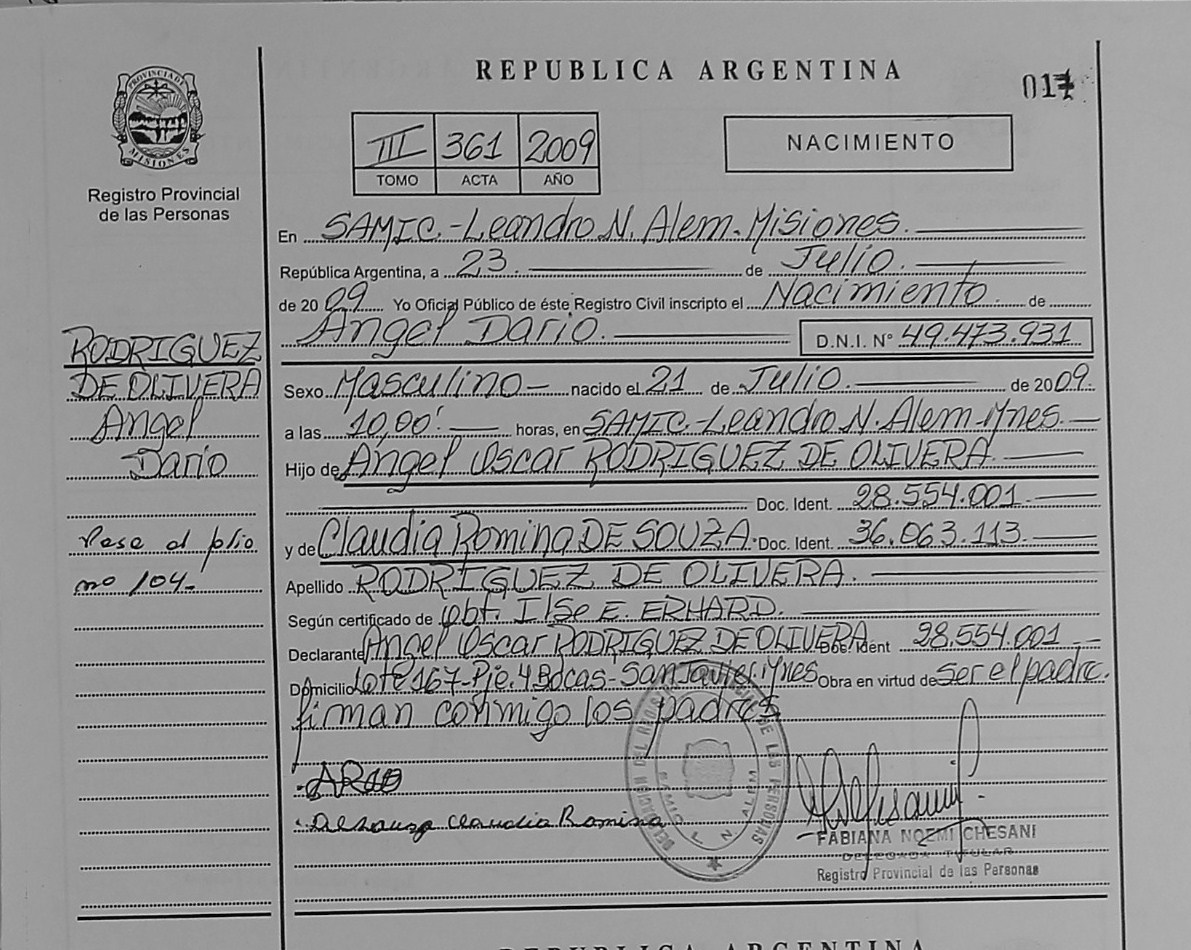 REPUBLICA ARGENTINA
017
PROVINCIA DE MISIONES
Registro Provincial
de las Personas
III 361 2009
TOMO ACTA AÑO
NACIMIENTO
En SAMIC.-Leandro N. Alem.-Misiones.
República Argentina, a 23 de Julio.
de 2009 Yo Oficial Público de éste Registro Civil inscripto el Nacimiento. de
Angel Dario. D.N.I. N° 49.473.931
RODRIGUEZ
DE OLIVERA
Angel
Dario
Sexo Masculino nacido el 21 de Julio. de 2009.
a las 10,00' horas, en SAMIC.-Leandro N. Alem-Mnes.
Hijo de Angel Oscar RODRIGUEZ DE OLIVERA
Doc. Ident. 28.554.001
y de Claudia Romina DE SOUZA. Doc. Ident. 36.063.113.
Pase al folio
no 104-
Apellido RODRIGUEZ DE OLIVERA.
Según certificado de Obt. Ilse E. ERHARD.
Declarante Angel Oscar RODRIGUEZ DE OLIVERA Doc. Ident 28.554.001
Domicilio Lote 167-Pje. 4 Bocas-San Javier.Mnes Obra en virtud de ser el padre.
firman conmigo los padres
Desouza Claudia Romina
FABIANA NOEMI CHESANI
DELEGADA TITULAR
Registro Provincial de las Personas
REPUBLICA ARGENTINA